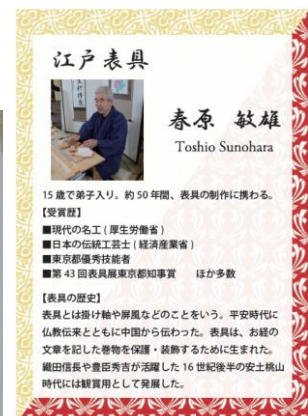 江戸表具
春原 敏雄
Toshio Sunohara
15歳で弟子入り。約50年間、表具の制作に携わる。
【受賞歴】
■現代の名工(厚生労働省)
■日本の伝統工芸士(経済産業省)
■東京都優秀技能者
■第43回表具展東京都知事賞　ほか多数
【表具の歴史】
表具とは掛け軸や屏風などのことをいう。平安時代に
仏教伝来とともに中国から伝わった。表具は、お経の
文章を記した巻物を保護・装飾するために生まれた。
織田信長や豊臣秀吉が活躍した16世紀後半の安土桃山
時代には観賞用として発展した。